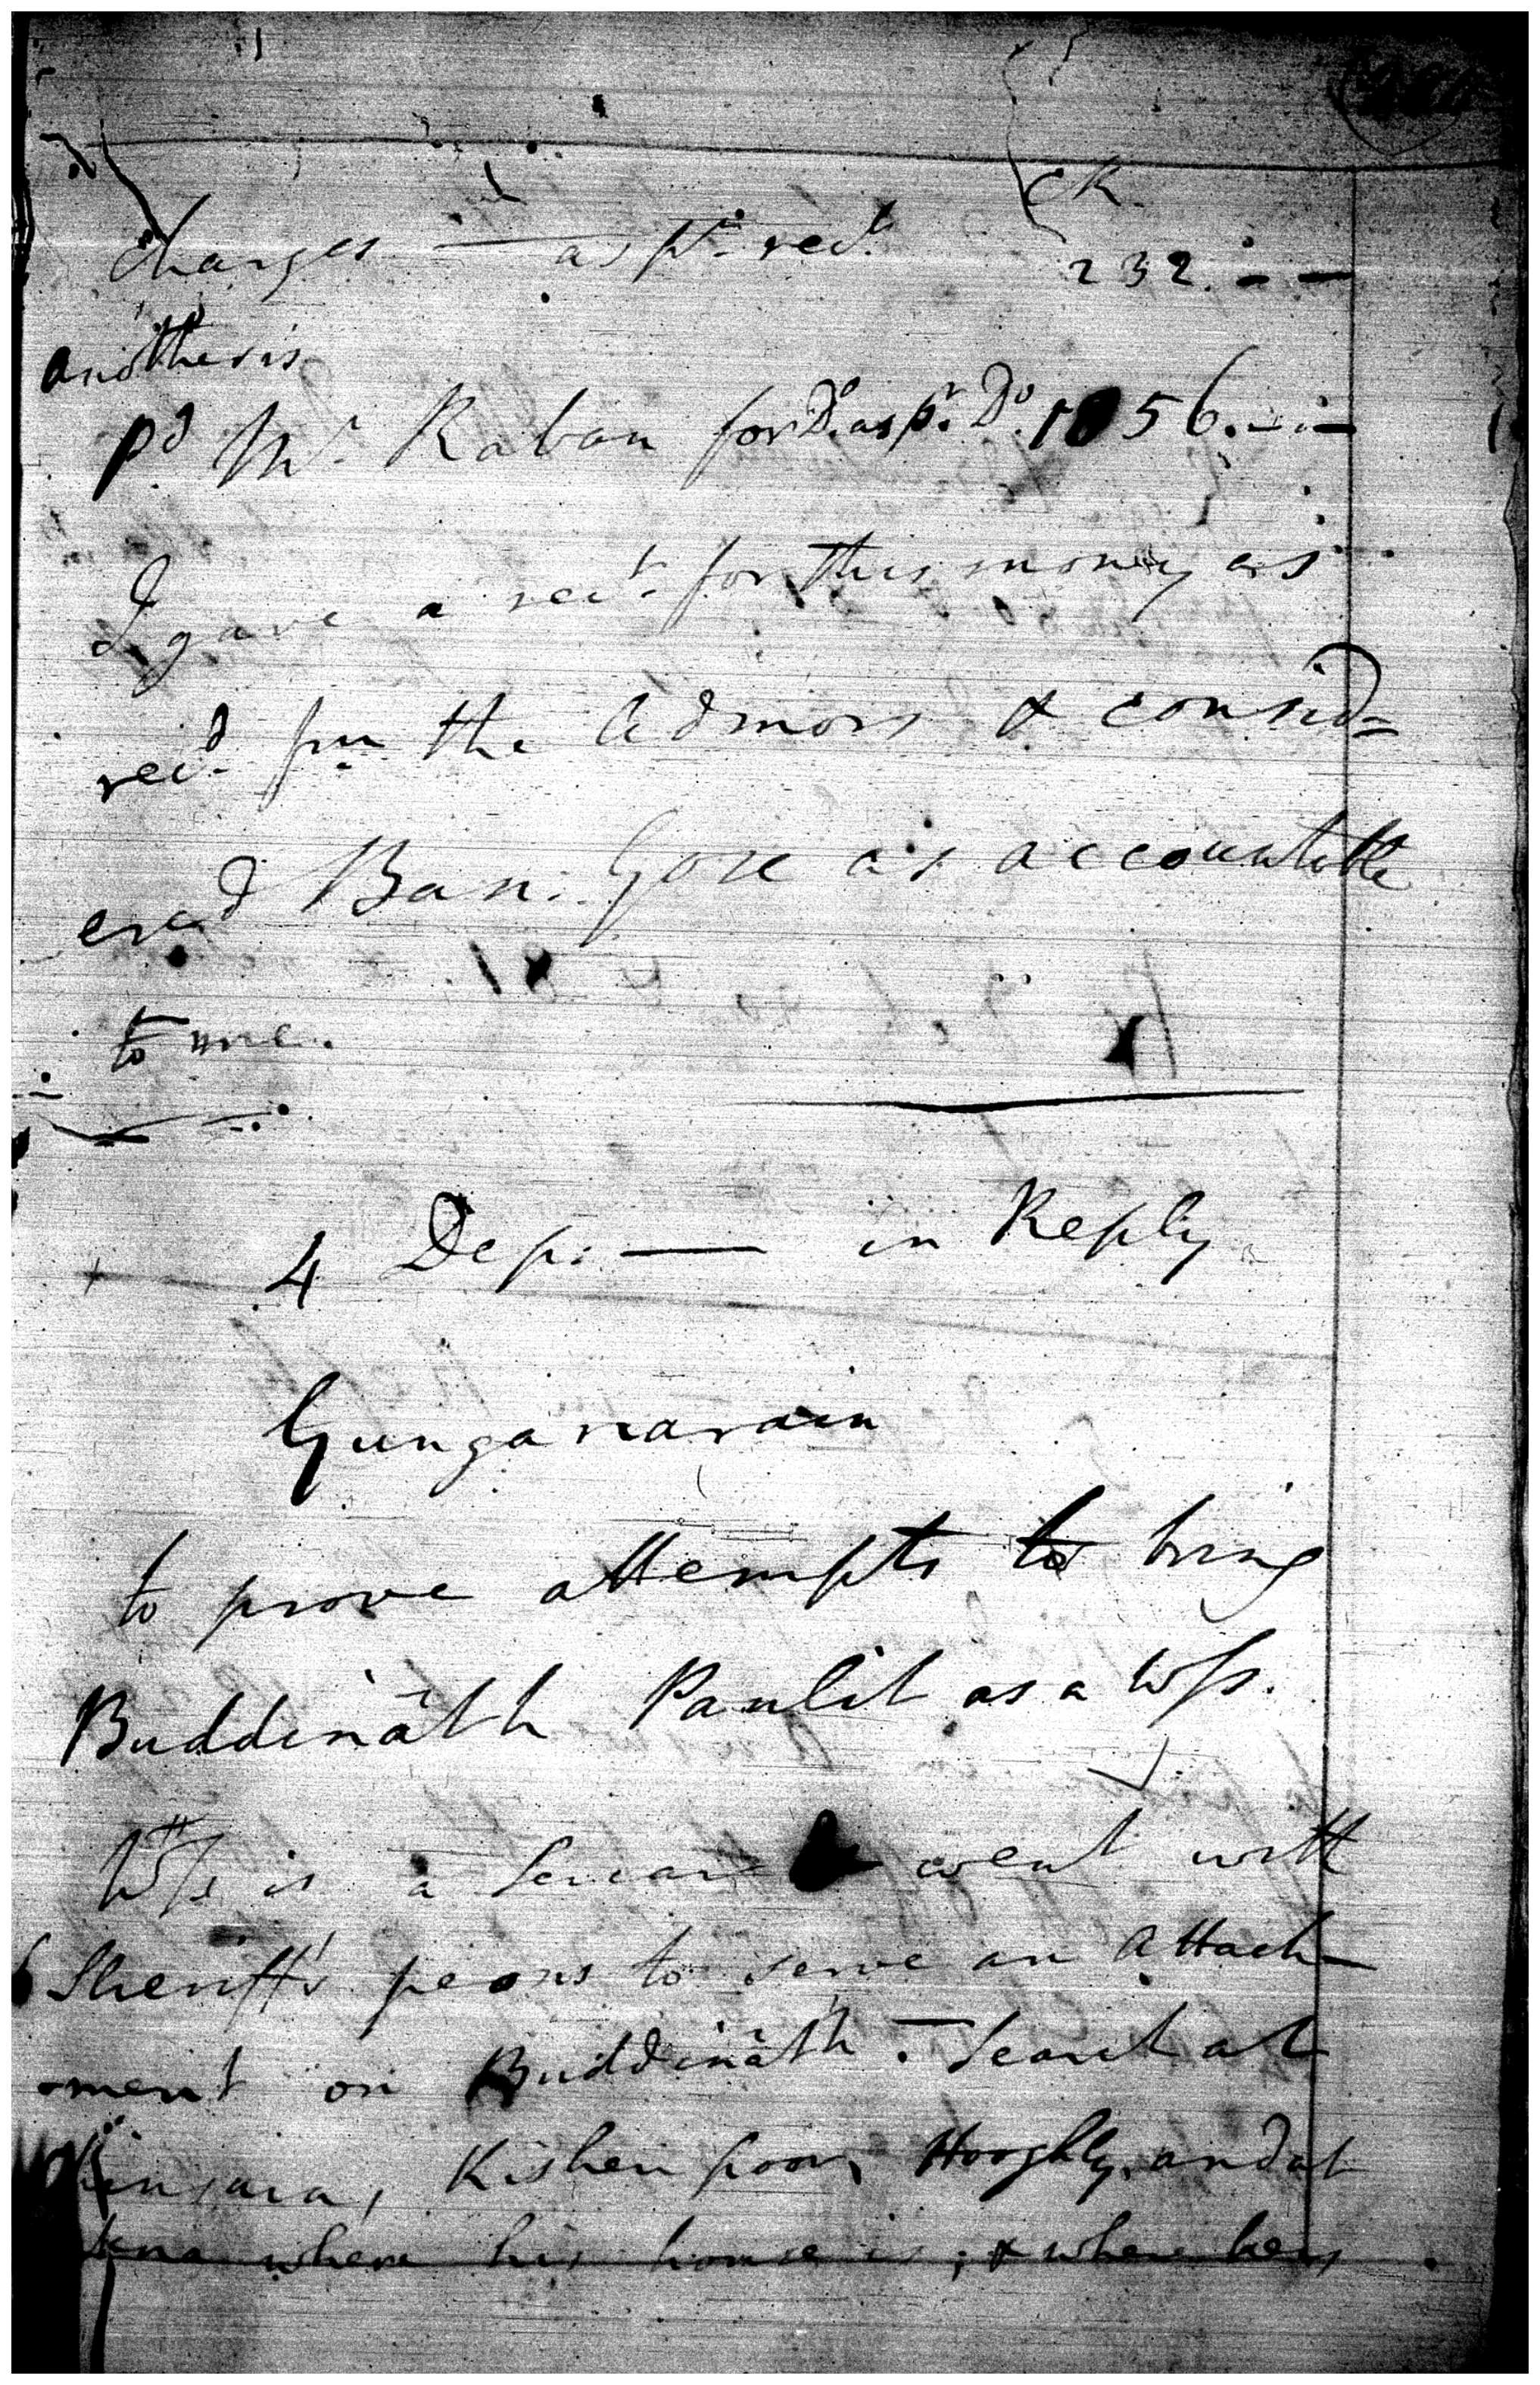 Charges — as pr. rect. 232. - -
another is
pd Mr. Raban for Do. as pr. Do. 1056. - -
I gave a rect. for this money as
recd. fm the Admors & consid=
ered Ban: Gose as accountable
to me.
4 Dep: — in Reply
Gunganarain
to prove attempts to bring
Buddinâth Paulit as a Wss.
Wss is a Sircar went with
Sheriff's peons to serve an Attach-
-ment on Buddinâth. - Search at
Kishenpoor, Hooghly, and at
where his house is, & where he is